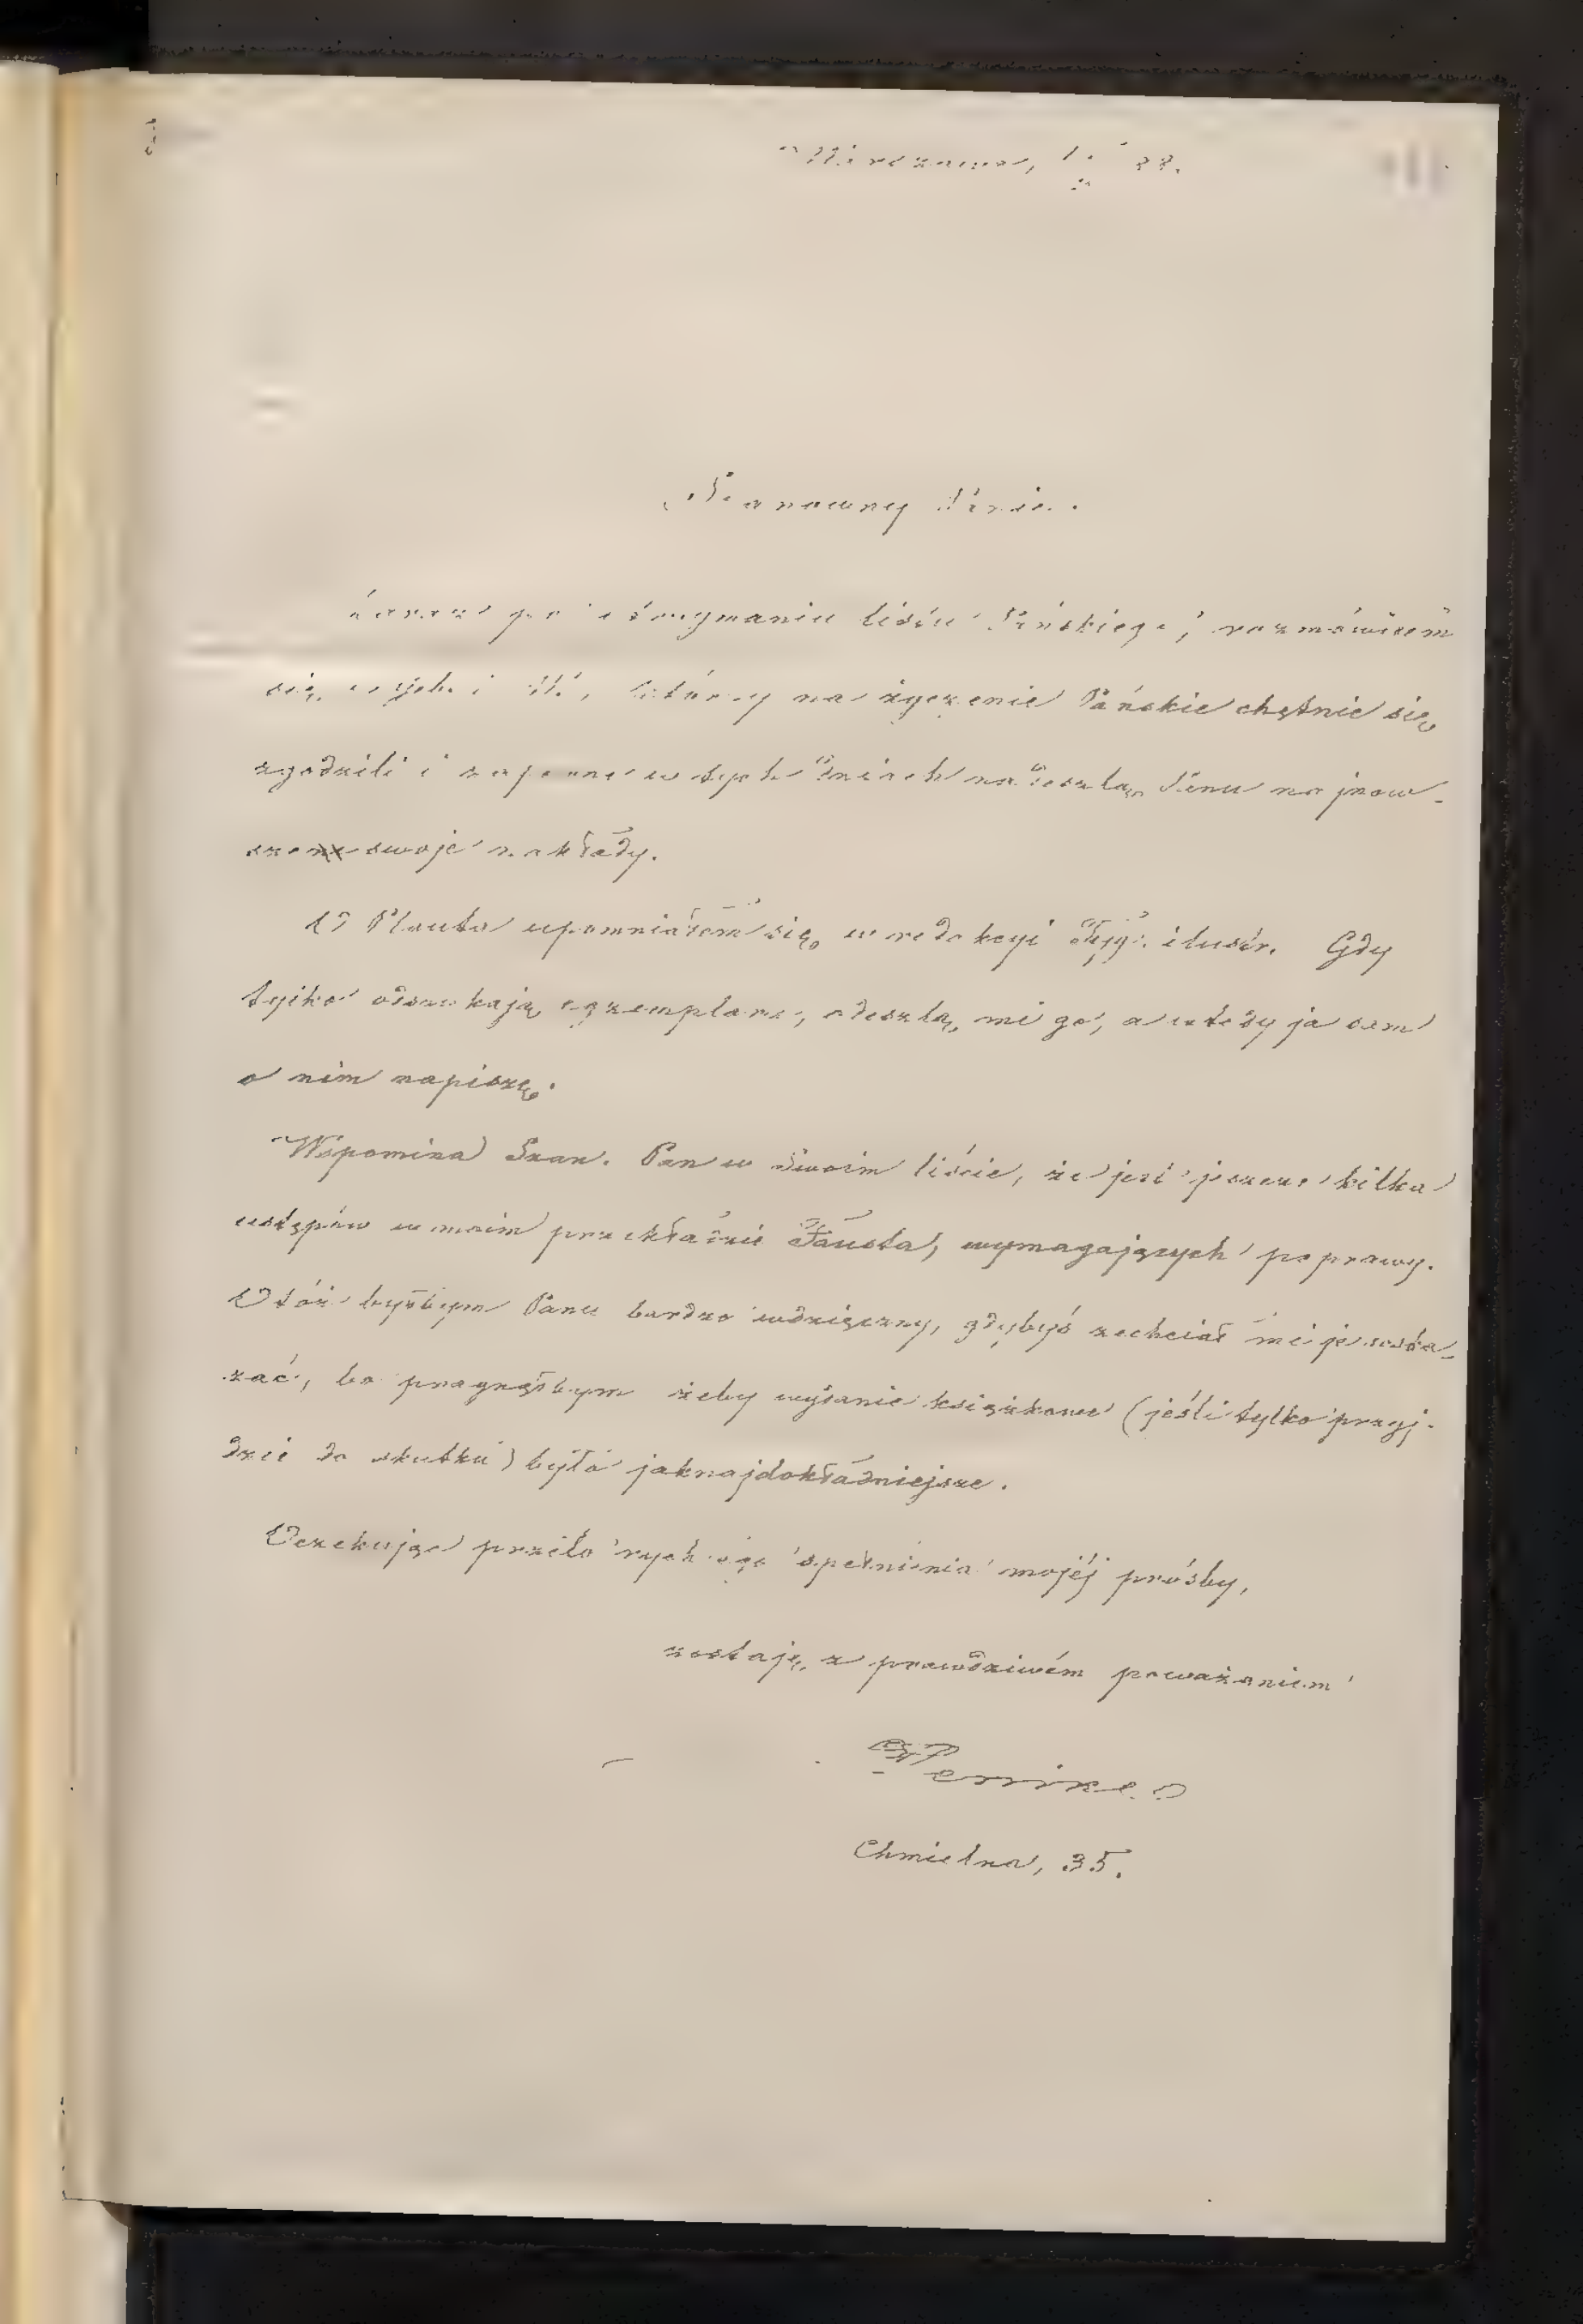 Warszawa,
Szanowny Panie.
Zaraz po otrzymaniu listu Pańskiego, rozmówiłem
się którzy na życzenie Pańskie chętnie się
zgodzili i zapewne w tych dniach nadeszlą Panu najnow-
sze swoje nakłady.
O Plauta upomniałem się w redakcyi Tyg. ilustr. Gdy
tylko odszukają egzemplarz, odeszlą mi go, a wtedy ja sam
o nim napiszę.
Wspomina Szan. Pan w Swoim liście, że jest jeszcze kilka
ustępów w moim przekładzie Fausta, wymagających poprawy.
Otóż byłbym Panu bardzo wdzięczny, gdybyś zechciał mi je wska-
zać, bo pragnąłbym żeby wydanie książkowe (jeśli tylko przyj-
dzie do skutku) było jaknajdokładniejsze.
Oczekując przeto rychłego spełnienia mojéj prośby,
zostaję z prawdziwém poważaniem
Jenike
Chmielna, 35.